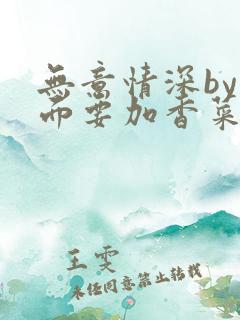 無意情深by
而要加香菜
王雯
未经同意禁止转载